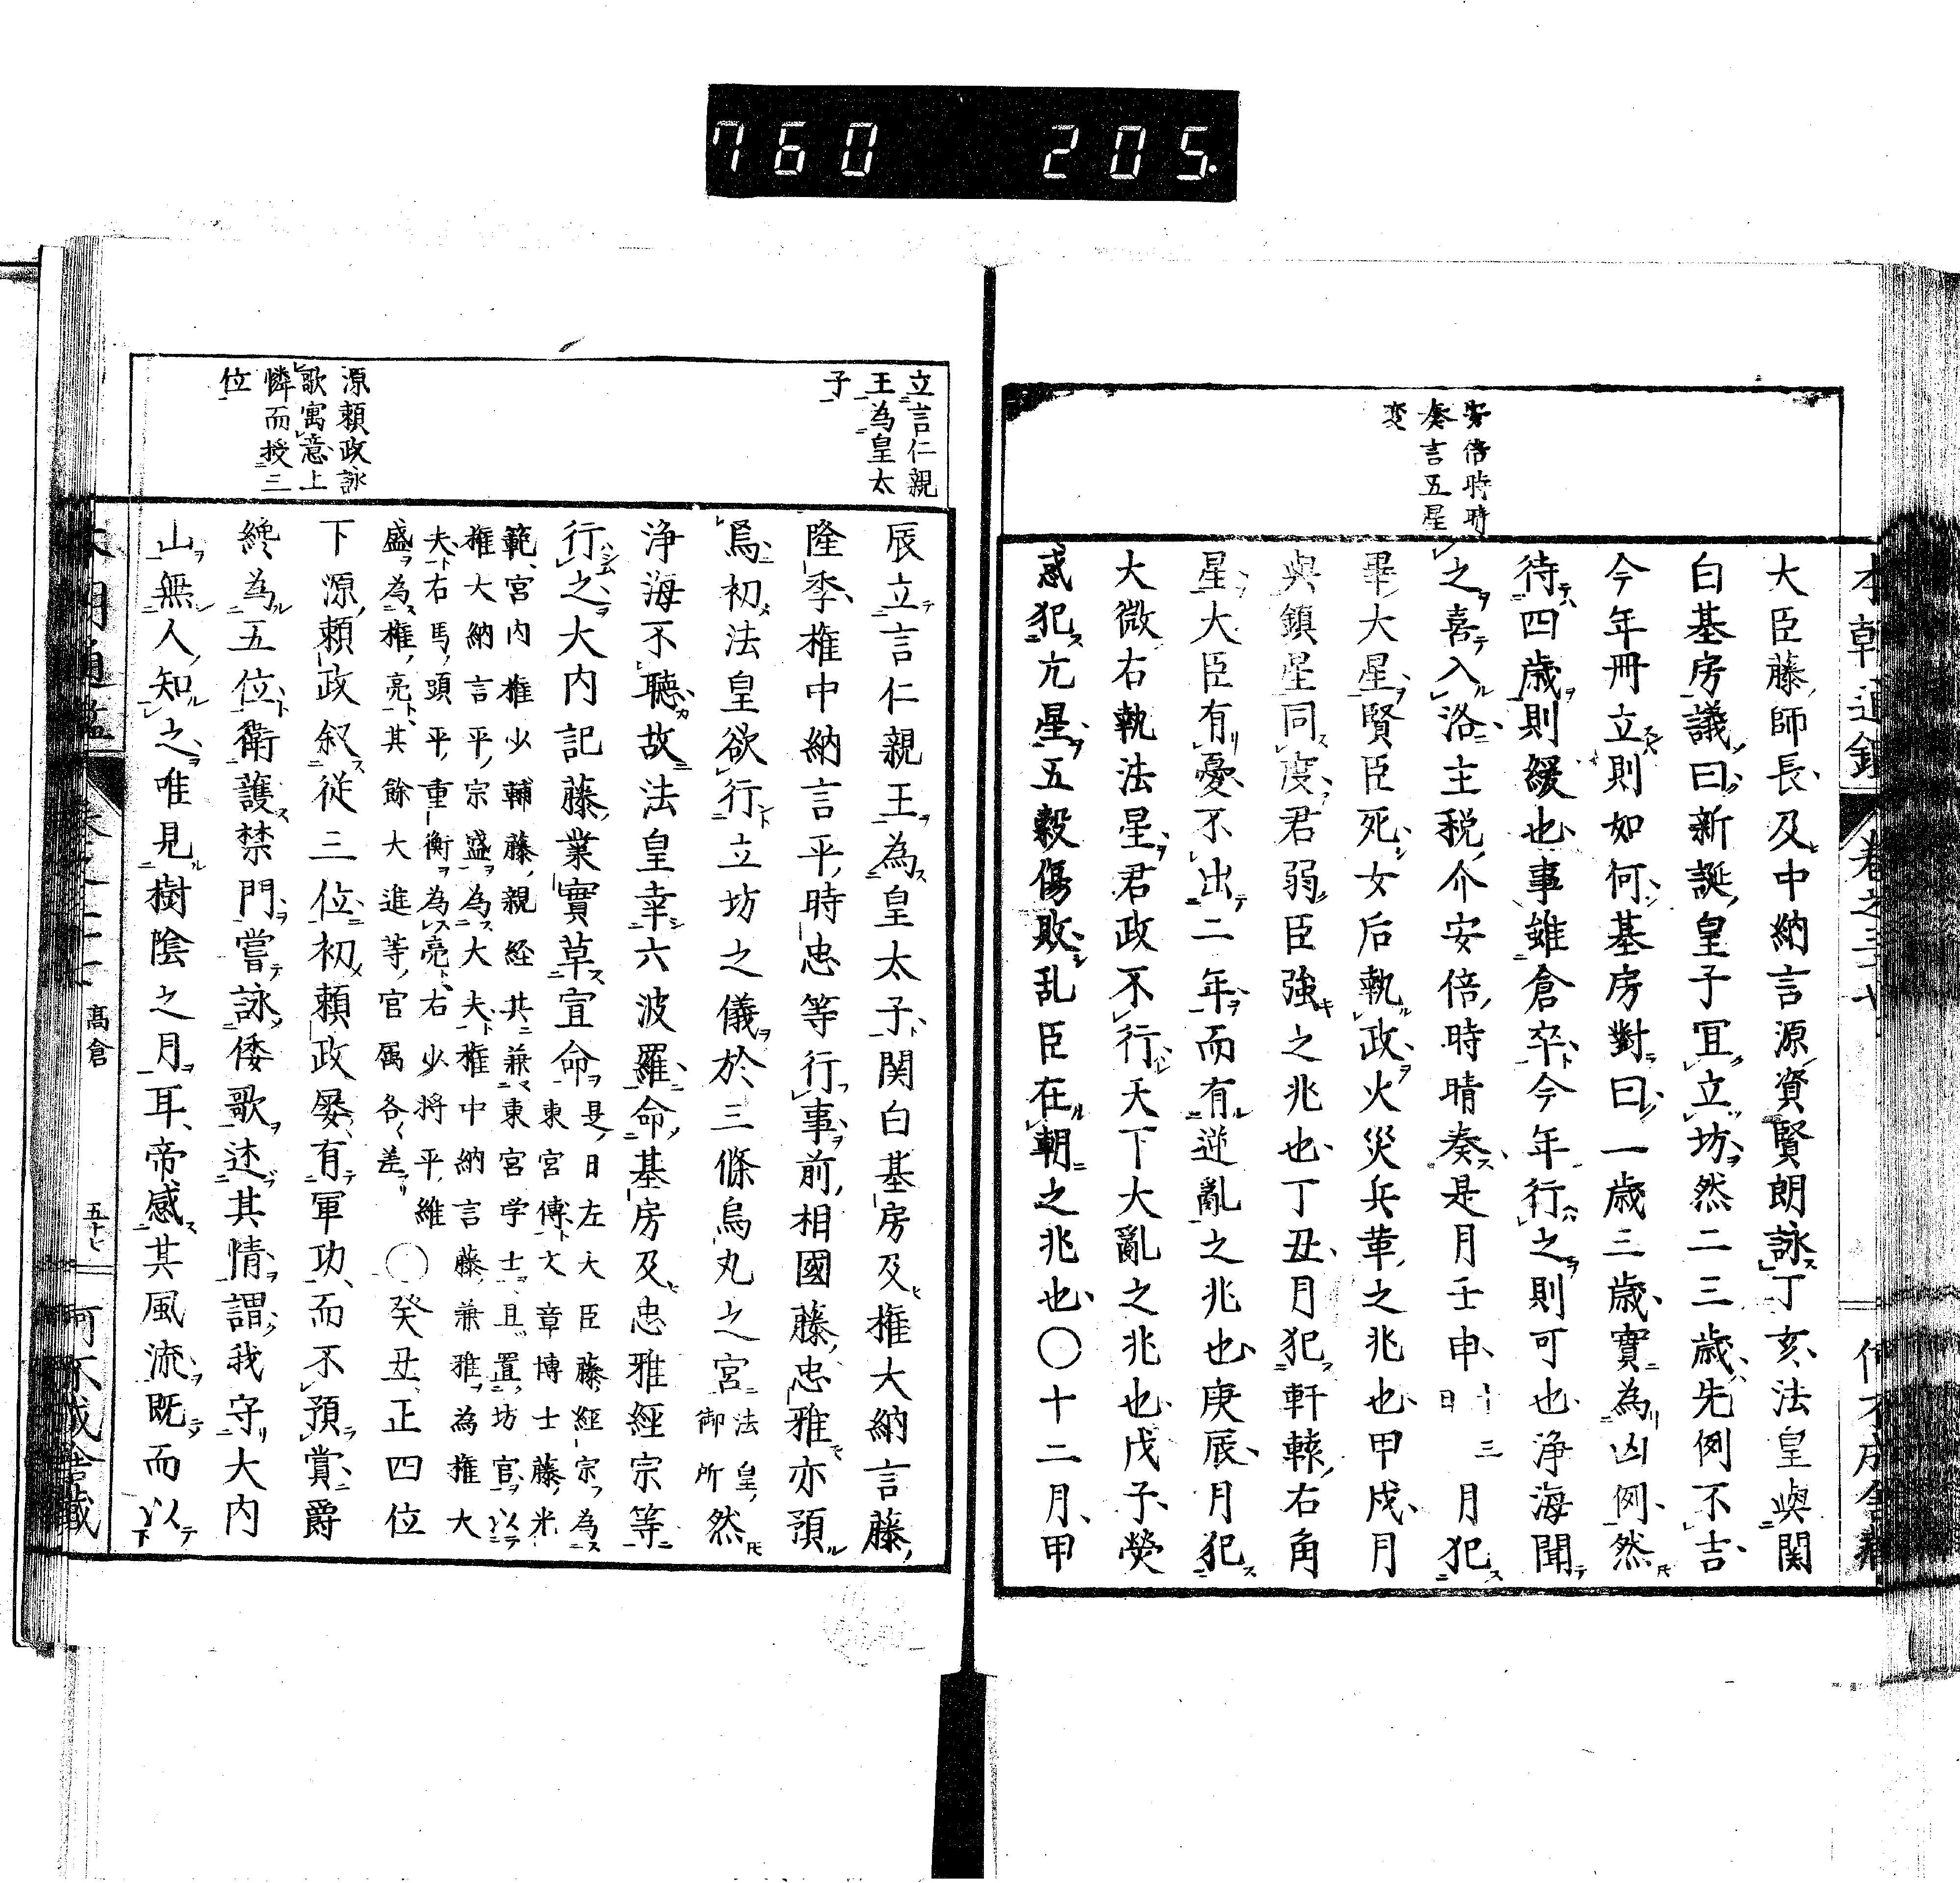 760 205.
安倍時晴
奏言五星
変
大臣藤師長及中納言源資賢朗詠丁亥法皇與関
白基房議曰新誕皇子冝立坊然二三歳先例不吉
今年冊立則如何基房對曰一歳三歳實為凶例然
待四歳則緩也事雖倉卒今年行之則可也浄海聞
之喜入洛主税介安倍時晴奏是月壬申十三日月犯
畢大星賢臣死女后執政火災兵革之兆也甲戌月
與鎮星同度君弱臣強之兆也丁丑月犯軒轅右角
星大臣有憂不出二年而有逆亂之兆也庚辰月犯
大微右執法星君政不行天下大亂之兆也戊子熒
惑犯亢星五穀傷敗乱臣在朝之兆也〇十二月甲
立言仁親
王為皇太
子
源頼政詠
歌寓意上
憐而授三
位
辰立言仁親王為皇太子関白基房及権大納言藤
隆季権中納言平時忠等行事前相國藤忠雅亦預
焉初法皇欲行立坊之儀於三條烏丸之宮法皇御所然
浄海不聴故法皇幸六波羅命基房及忠雅經宗等
行之大内記藤業實草宣命是日左大臣藤經宗為
東宮傳文章博士藤光
範宮内権少輔藤親経共兼東宮学士且置坊官以
権大納言平宗盛為大夫権中納言藤兼雅為権大
夫右馬頭平重衡為亮右少将平維
盛為権亮其餘大進等官属各差〇癸丑正四位
下源頼政叙従三位初頼政屡有軍功而不預賞爵
終為五位衛護禁門嘗詠倭歌述其情謂我守大内
山無人知之唯見樹陰之月耳帝感其風流既而以
高倉
五十七